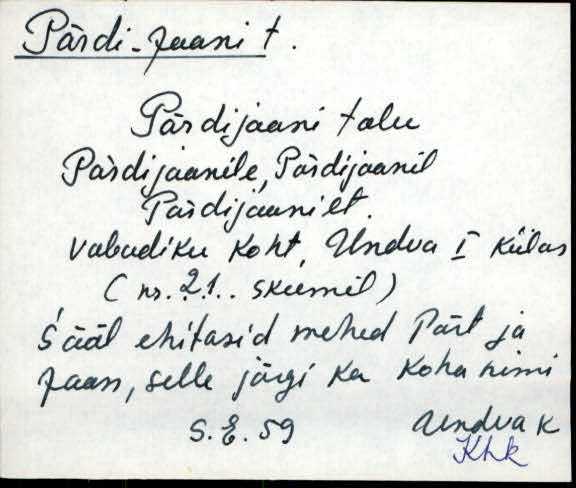 Pärdi-Jaani t.
Pärdijaani talu
Pärdijaanile, Pärdijaanil
Pärdijaanilt.
vabadiku koht, Undva I külas
(nr. 21.. skeemil)
Sääl ehitasid mehed Pärt ja
Jaan, selle järgi ka koha nimi
S.E. 59
Undva k
Khk